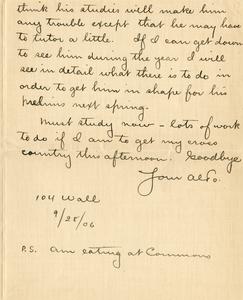 think his studies will make him
any trouble except that he may have
to tutor a little. If I can get down
to see him during the year I will
see in detail what there is to do in
order to get him in shape for his
prelims next spring.
Must study now - lots of work
to do if I am to get my cross
country this afternoon. Goodbye
Your Aldo.
104 Wall
9/28/06
P.S. am eating at Commons